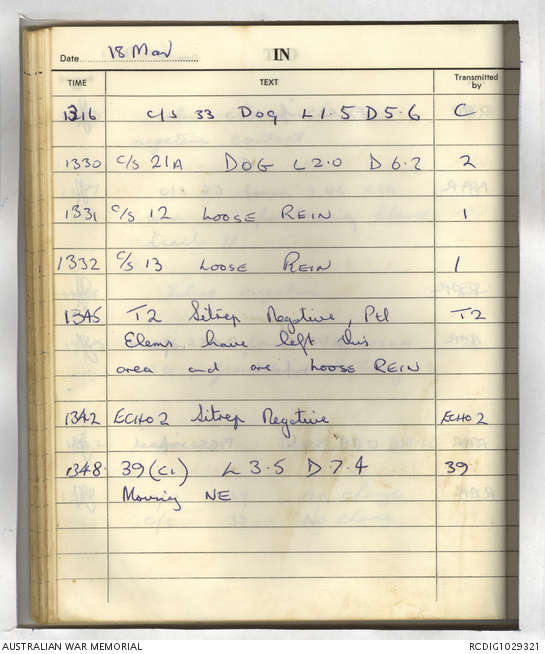 Date 18 Mar IN
TIME TEXT Transmitted by
1316 c/s 33 DOG L1.5 D5.6 C
1330 c/s 21A DOG L2.0 D6.2 2
1331 c/s 12 LOOSE REIN 1
1332 c/s 13 LOOSE REIN 1
1345 T2 Sitrep Negative, Ptl T2
Elems have left this
area and are LOOSE REIN
1342 ECHO 2 Sitrep Negative ECHO 2
1348 39 (C1) L 3.5 D 7.4 39
Moving NE
AUSTRALIAN WAR MEMORIAL RCDIG1029321